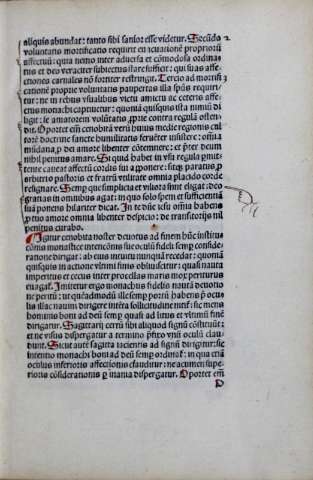 aliquis abundat: tanto sibi sanior esse videtur. Secūdo
voluntaris mortificatio requirit euacuationē propriorū
affectuū: qua nemo inter aduersa et cōmodosa ordina
tus et deo veraciter subiectus stare sufficit: qui suas affe
ctiones carnales nō fortiter restringit. Tercio ad mortifi
cationē proprie voluntatis paupertas illa spūs requiri
tur: ne in rebus vsualibus victu amictu nec ceteris affe
ctus monachi capiatur: quoniā quisquis ista nimiū di
ligit: se amatorem volūtatis proprie contra regulā osten
dit. Oportet em̄ cenobitā verū huius medie regionis cul
torē doctrine sancte humilitatis feruēter insistere: omnia
mūdana pro dei amore libenter cōtemnere: et preter deum
nihil penitus amare. Si quid habet in vsu regula pmit
tente caueat affectū cordis sui apponere: sitque paratus pro
arbitrio pastoris et fratrū vtilitate omnia placido corde
resignare. Semper que simplicia et viliora sunt eligat: deo
gratias in omnibus agat: in quo solo spem et sufficientiā
suā ponens hilariter dicat. In te dn̄e iesu omnia habens
pro tuo amore omnia libenter despicio: de transitorijs nil
penitus curabo.
Igitur cenobita noster deuotus ad finem huius institu
tiōnis monastice intenciōnis sue oculū fidelē semper conside
ratione dirigat: ab eius intuitu nunquā recedat: quoniā
quisquis in actione vltimi finis obliuiscitur: quasi nauta
imperitus et cecus inter procellas maris mox periturus
euagatur. Imitetur ergo monachus fidelis nautā deuotio
ne peritū: ut quēadmodū ille semper portū habens pre ocu
lis illac nauim dirigere intēta sollicitudine nitit: sic mens
hominis boni ad deū semper quasi ad litus et vltimū finē
dirigatur. Sagittarij certū sibi aliquod signū cōstituūt:
et ne visus dispergatur a termino prefixo vnū oculū clau
dunt. Sicut aute sagitta iacientis ad signū dirigitur: sic
intentio monachi boni ad deū semper ordinatur: in qua em̄
oculus inferioris affectionis clauditur: ne acumen supe
rioris cōsiderationis per inania dispergatur. Oportet em̄